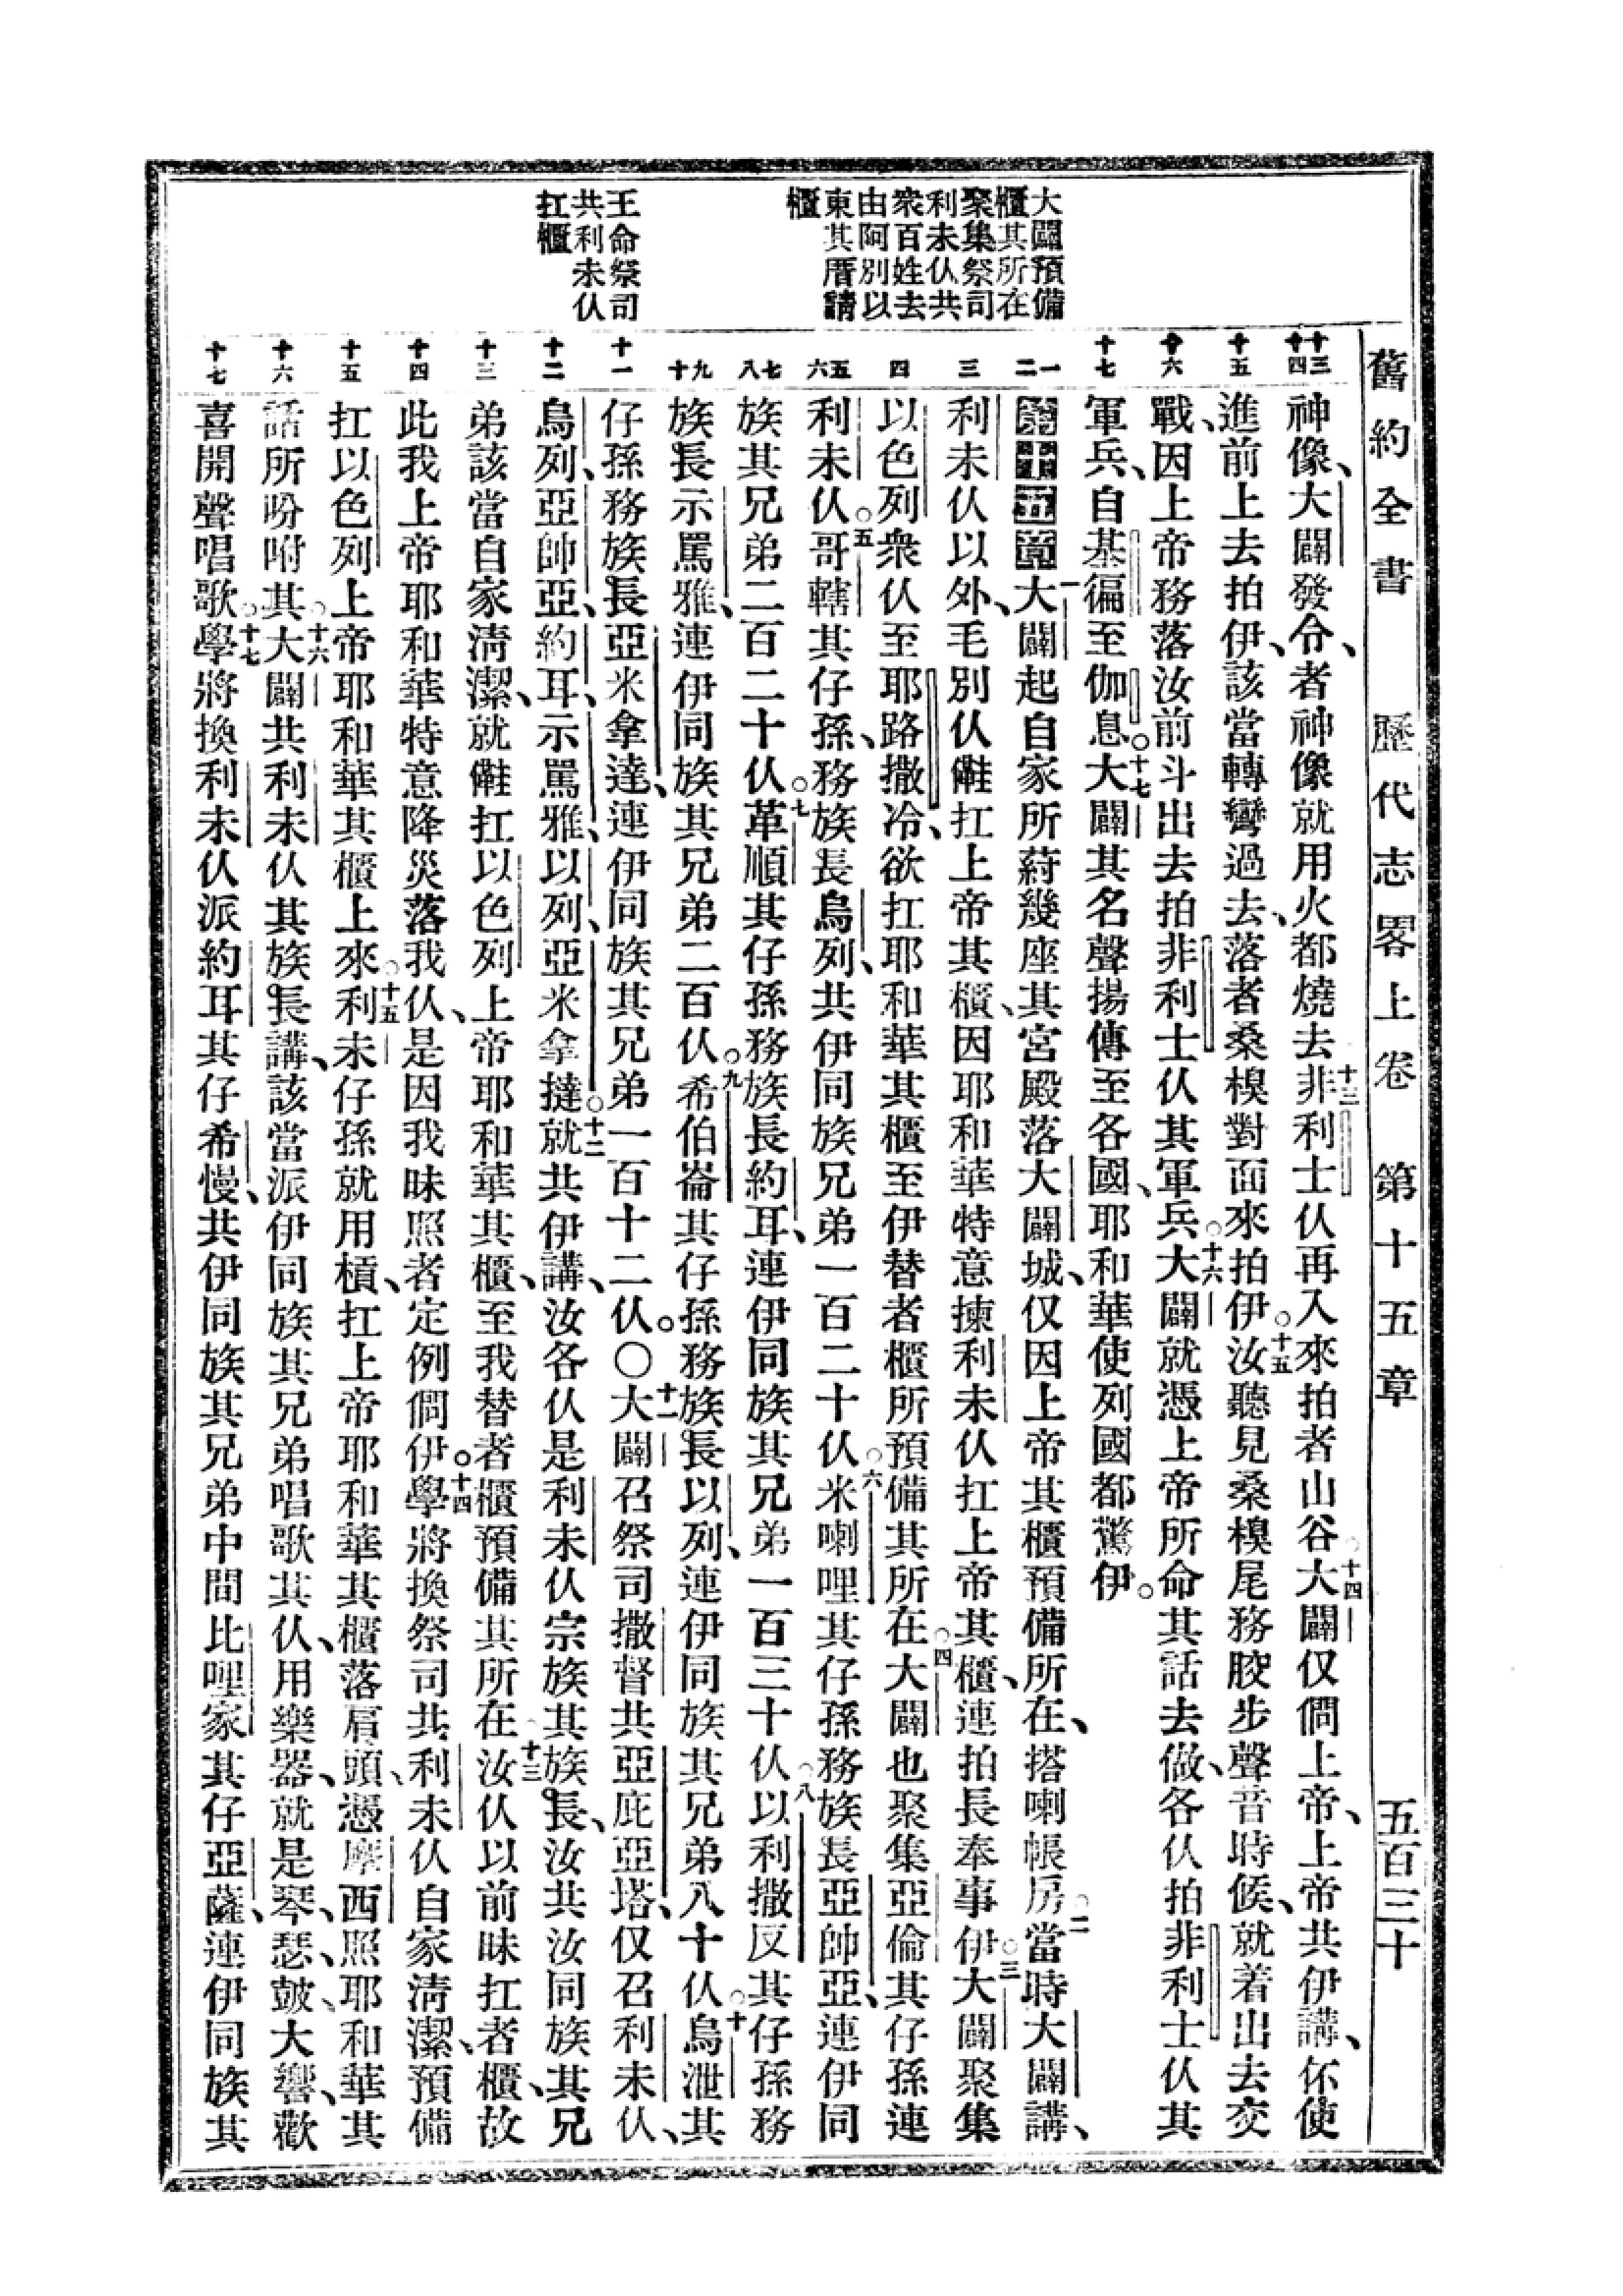 舊約全書 歷代志畧上卷 第十五章 五百三十
大闢預備
櫃其所在
聚集祭司
利未仈共
衆百姓去
由阿別以
東其厝請
櫃
王命祭司
共利未仈
扛櫃
十三 十四 十五 十六 十七 一 二 三 四 五 六 七 八 九 十 十一 十二 十三 十四 十五 十六 十七
神像、大闢發令、者神像就用火都燒去十三非利士仈再入來拍者山谷○十四大闢仅僩上帝、上帝共伊講、伓使
進前上去拍伊、該當轉彎過去、落者桑模對面來拍伊○十五汝聽見桑模尾務跤步聲音時候、就着出去交
戰、因上帝務落汝前斗出去拍非利士仈其軍兵○十六大闢就憑上帝所命其話去做、各仈拍非利士仈其
軍兵、自基徧至伽息○十七大闢其名聲揚傳至各國、耶和華使列國都驚伊。
第十五章一大闢起自家所蔚幾座其宮殿落大闢城、仅因上帝其櫃預備所在、搭喇帳房○二當時大闢講、
利未仈以外、毛別仈㒕扛上帝其櫃、因耶和華特意揀利未仈扛上帝其櫃、連拍長奉事伊○三大闢聚集
以色列衆仈至耶路撒冷、欲扛耶和華其櫃至伊替者櫃所預備其所在○四大闢也聚集亞倫其仔孫連
利未仈○五哥轄其仔孫、務族長烏列、共伊同族兄弟一百二十仈○六米喇哩其仔孫務族長亞帥亞、連伊同
族其兄弟二百二十仈○七革順其仔孫務族長約耳、連伊同族其兄弟一百三十仈○八以利撒反其仔孫務
族長示罵雅、連伊同族其兄弟二百仈○九希伯崙其仔孫務族長以列、連伊同族其兄弟八十仈○十烏泄其
仔孫務族長亞米拿達、連伊同族其兄弟一百十二仈。〇十一大闢召祭司撒督共亞庇亞塔、仅召利未仈、
烏列、亞帥亞、約耳、示罵雅、以列、亞米拿撻○十二就共伊講、汝各仈是利未仈宗族其族長、汝共汝同族其兄
弟該當自家清潔、就㒕扛以色列上帝耶和華其櫃、至我替者櫃預備其所在○十三汝仈以前昧扛者櫃、故
此我上帝耶和華特意降災落我仈、是因我昧照者定例僩伊○十四學將換祭司共利未仈自家清潔、預備
扛以色列上帝耶和華其櫃上來○十五利未仔孫就用槓、扛上帝耶和華其櫃落肩頭、憑摩西照耶和華其
話所吩咐其○十六大闢共利未仈其族長講、該當派伊同族其兄弟唱歌其仈、用樂器、就是琴、瑟、鼓、大響、歡
喜開聲唱歌○十七學將換利未仈派約耳其仔希慢、共伊同族其兄弟中間比哩家其仔亞薩、連伊同族其